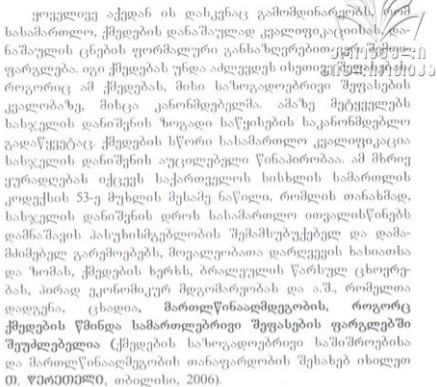 ყოველივე აქედან ის დასკვნაც გამომდინარეობს, რომ
სასამართლო, ქმედების დანაშაულად კვალიფიკაციისას, და-
ნაშაულის ცნების ფორმალური განსაზღვრებით არ შემო-
ფარგლება. იგი ქმედებას უნდა აძლევდეს ისეთივე შეფასებას,
როგორიც ამ ქმედებას, მისი საზოგადოებრივი შეფასების
კვალობაზე, მისცა კანონმდებელმა. ამაზე მეტყველებს
სასჯელის დანიშვნის ზოგადი საწყისების საკანონმდებლო
გადაწყვეტაც. ქმედების სწორი სასამართლო კვალიფიკაცია
სასჯელის დანიშვნის აუცილებელი წინაპირობაა. ამ მხრივ
ყურადღებას იქცევს საქართველოს სისხლის სამართლის
კოდექსის 53-ე მუხლის მესამე ნაწილი, რომლის თანახმად,
სასჯელის დანიშვნის დროს სასამართლო ითვალისწინებს
დამნაშავის პასუხისმგებლობის შემამსუბუქებელ და დამა-
მძიმებელ გარემოებებს, მოვალეობათა დარღვევის ხასიათსა
და ზომას, ქმედების ხერხს, ბრალეულის წარსულ ცხოვრე-
ბას, პირად ეკონომიკურ მდგომარეობას და ა.შ., რომელთა
დადგენა, ცხადია, მართლწინააღმდეგობის, როგორც
ქმედების წმინდა სამართლებრივი შეფასების ფარგლებში
შეუძლებელია (ქმედების საზოგადოებრივი საშიშროებისა
და მართლწინააღმეგობის თანაფარდობის შესახებ იხილეთ
თ. წერეთელი, თბილისი, 2006).